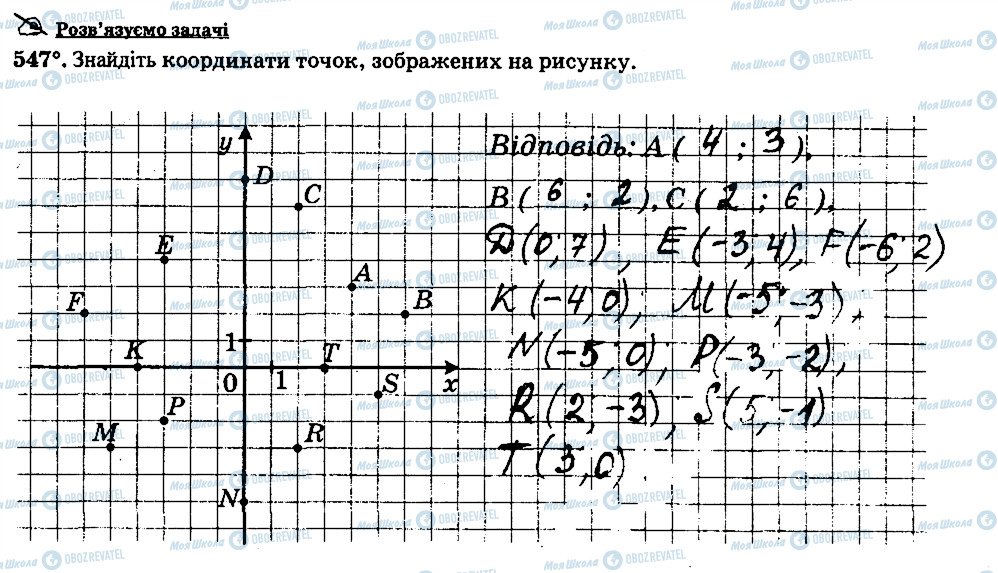 Розв'язуємо задачі
547°. Знайдіть координати точок, зображених на рисунку.
y
D
C
E
A
F
B
1
K
T
0
1
S
x
P
M
R
N
Відповідь: A ( 4 ; 3 ),
B ( 6 ; 2 ), C ( 2 ; 6 ),
D(0; 7), E (-3; 4), F(-6; 2)
K (-4; 0); M(-5; -3),
N(-5; 0); P(-3; -2),
R(2; -3), S(5; -1)
T(3, 0)
МояШкола OBOZREVATEL